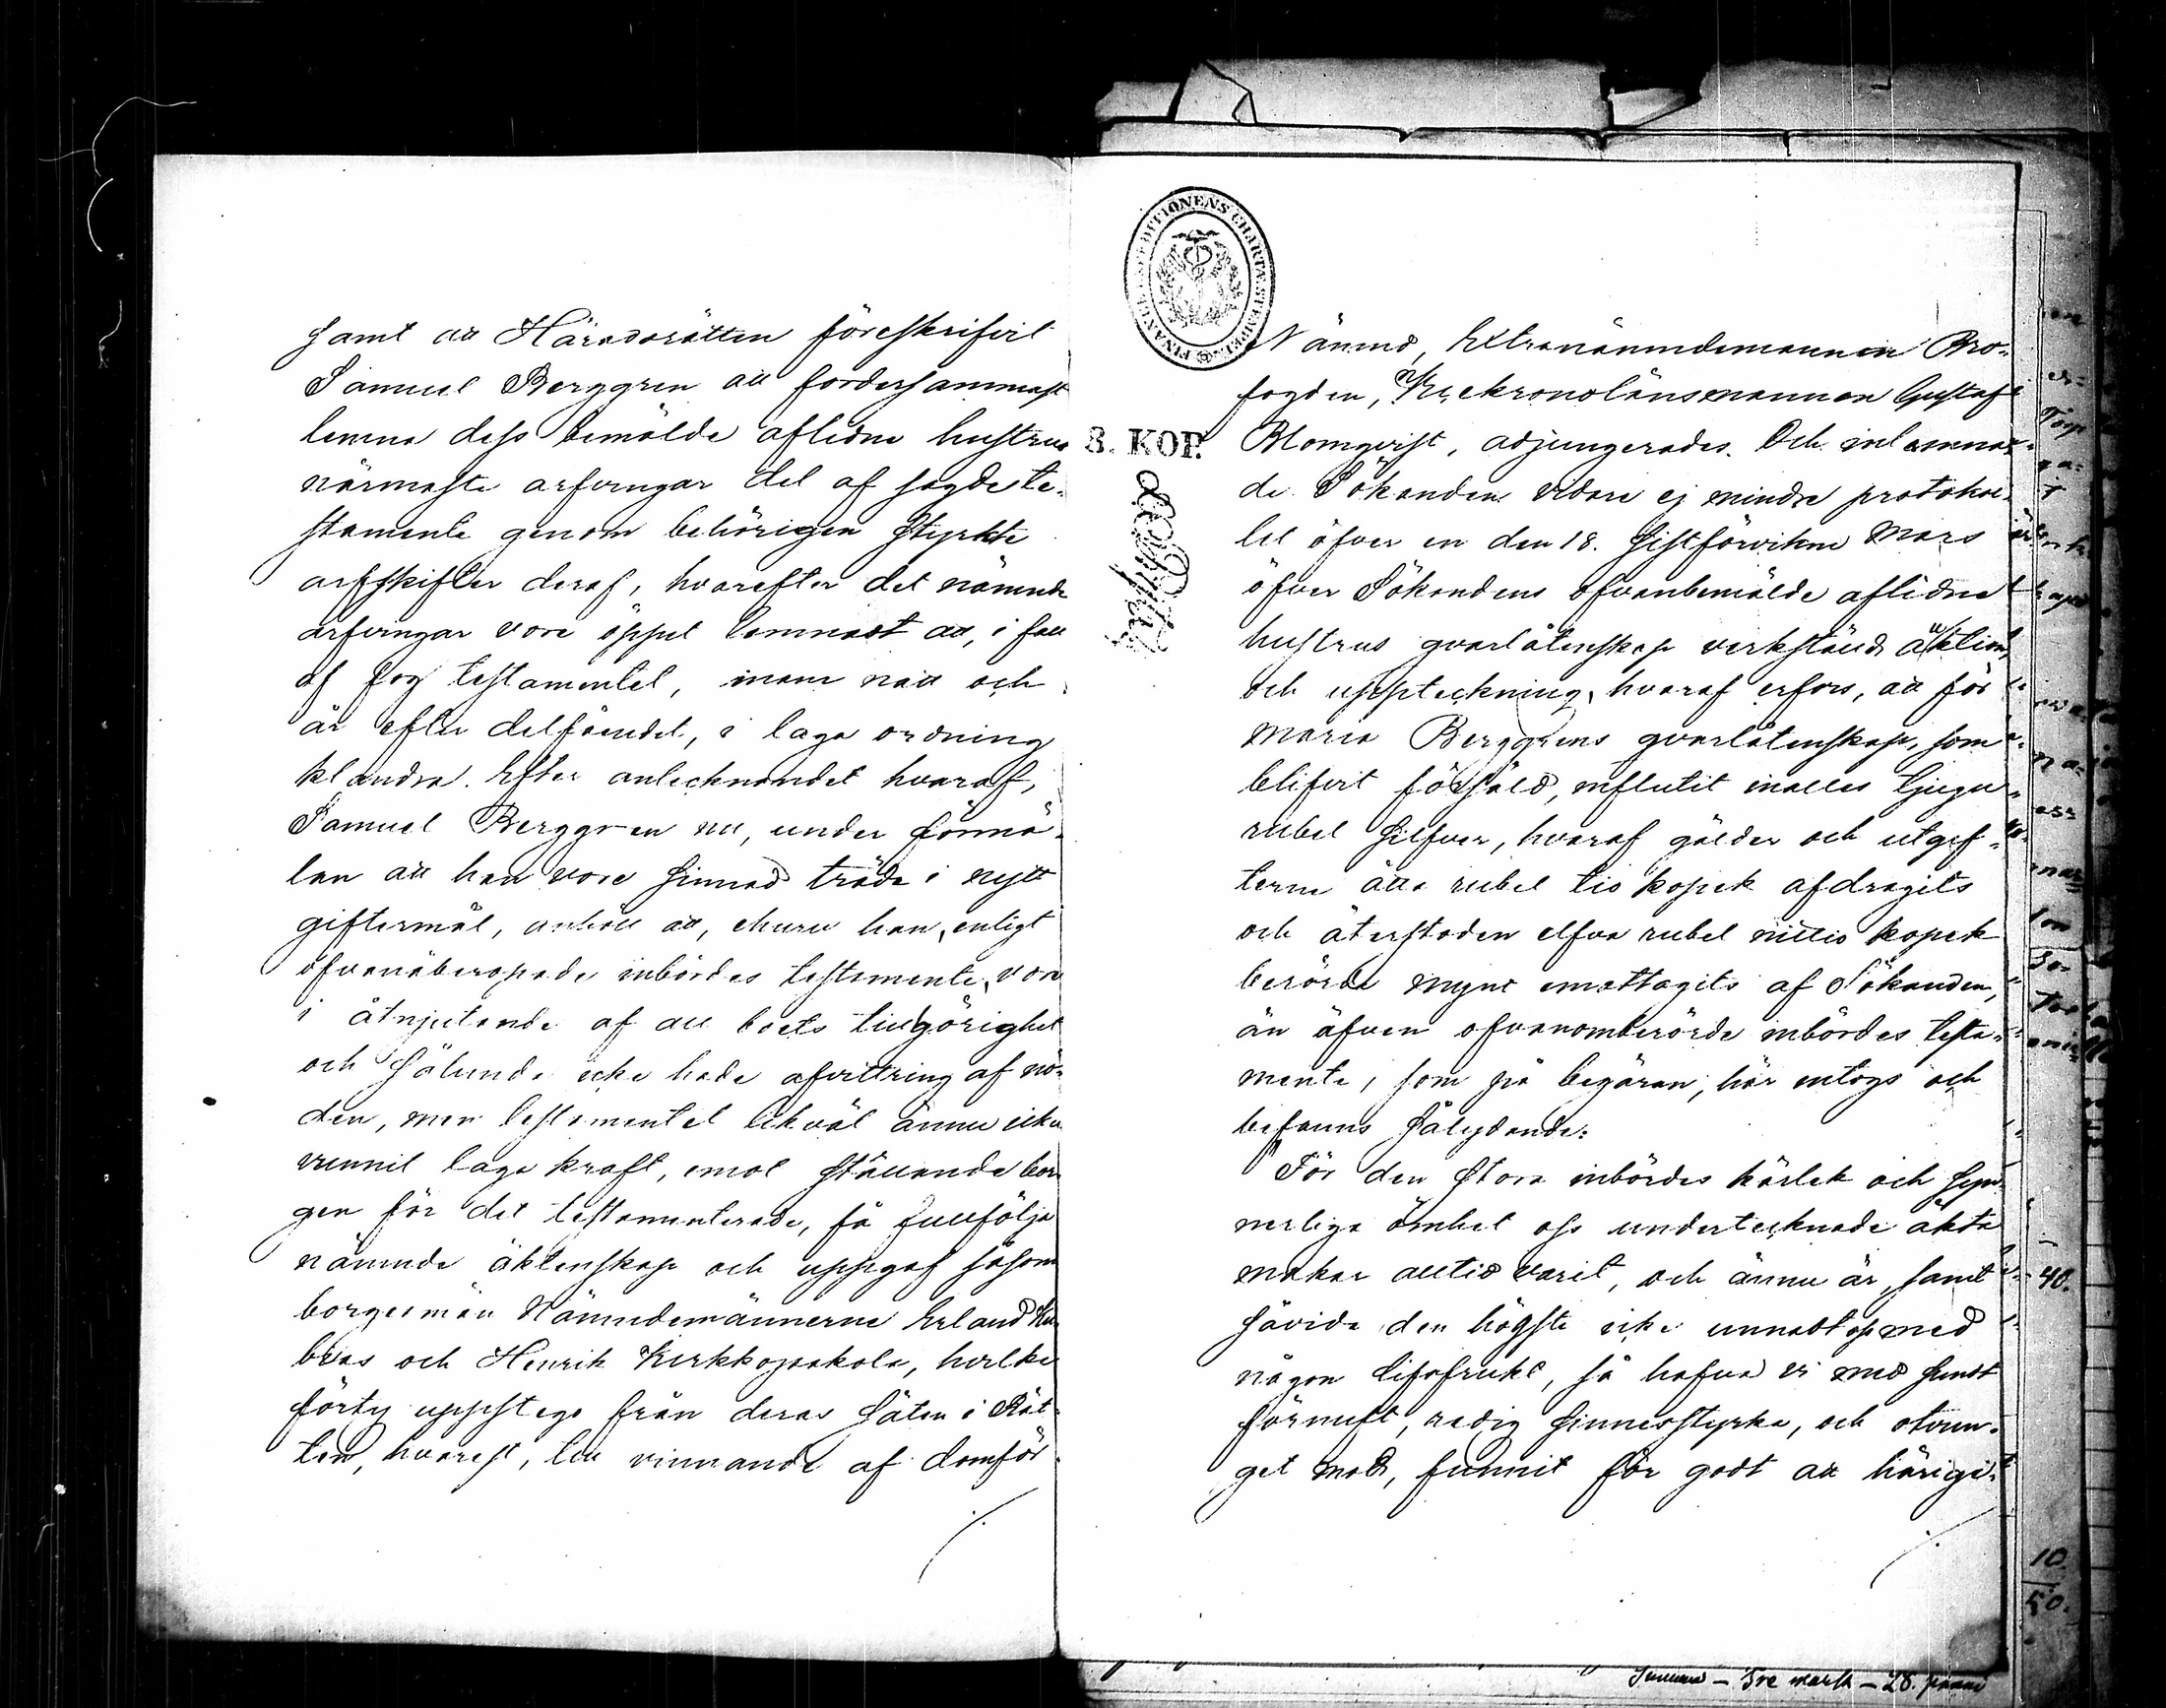 samt att Häradsrätten föreskrifvit
Samuel Berggren att fordersammast
lemna dess bemälde aflidne hustrus
närmaste arfvingar del af sagde te-
stamente genom behörigen styrkte
arfskifter deraf, hvarefter det nämnde
arfvingar vore öppet lemnadt att, i fall
af fog testamentet, inom natt och
år efter delfåendet, i laga ordning
klandra. Efter antecknandet hvaraf,
Samuel Berggren nu, under förmä-
lan att han vore sinnad träda i nytt
giftermål, anhöll att, ehuru han, enligt
ofvanåberopade inbördes testamente, vore
i åtnjutande af all boets tillgörighet
och sålunda icke hade afvittring af nö-
den, men testamentet likväl ännu icke
vunnit laga kraft, emot ställande bor-
gen för det testamenterade, få fullfölja
nämnde äktenskap och uppgaf såsom
borgesmän Nämndemännerne Erland
och Henrik Kirkkopaakola, hvilke
förty uppstego från deras säten i Rät-
ten, hvarest, till vinnande af domför
./.
FINANCE EXPEDITIONENS CHARTÆ STEMPEL
8. KOP.
Nämnd, Extranämndemannen Bro-
fogden, Vicekronolänsmannen Gustaf
Blomqvist, adjungerades. Och inlemna-
de Sökanden vidare ej mindre protokol-
let öfver en den 18. sistförvikne Mars
öfver Sökandens ofvanbemälde aflidne
hustrus qvarlåtenskap verkställd auktion
och uppteckning, hvaraf erfors, att för
Maria Berggrens qvarlåtenskap, som
blifvit försåld, influtit inalles tjugu
rubel silfver, hvaraf gälder och utgif-
terne åtta rubel tio kopek afdragits
och återstoden elfva rubel nittio kopek
berörde mynt emottagits af Sökanden,
än äfven ofvanomberörde inbördes testa-
mente, som på begäran, här intogs och
befanns sålydande:
"För den stora inbördes kärlek och syn-
nerliga ömhet oss undertecknade äkta
makar alltid varit, och ännu är, samt
såvida den högste icke unnadt oss med
någon lifsfrukt, så hafva vi med sundt
förnuft, redig sinnesstyrka, och otvun-
get mod, funnit för godt att härige-
./.
40.
10.
50.
Summa – Tre mark – 28. penni